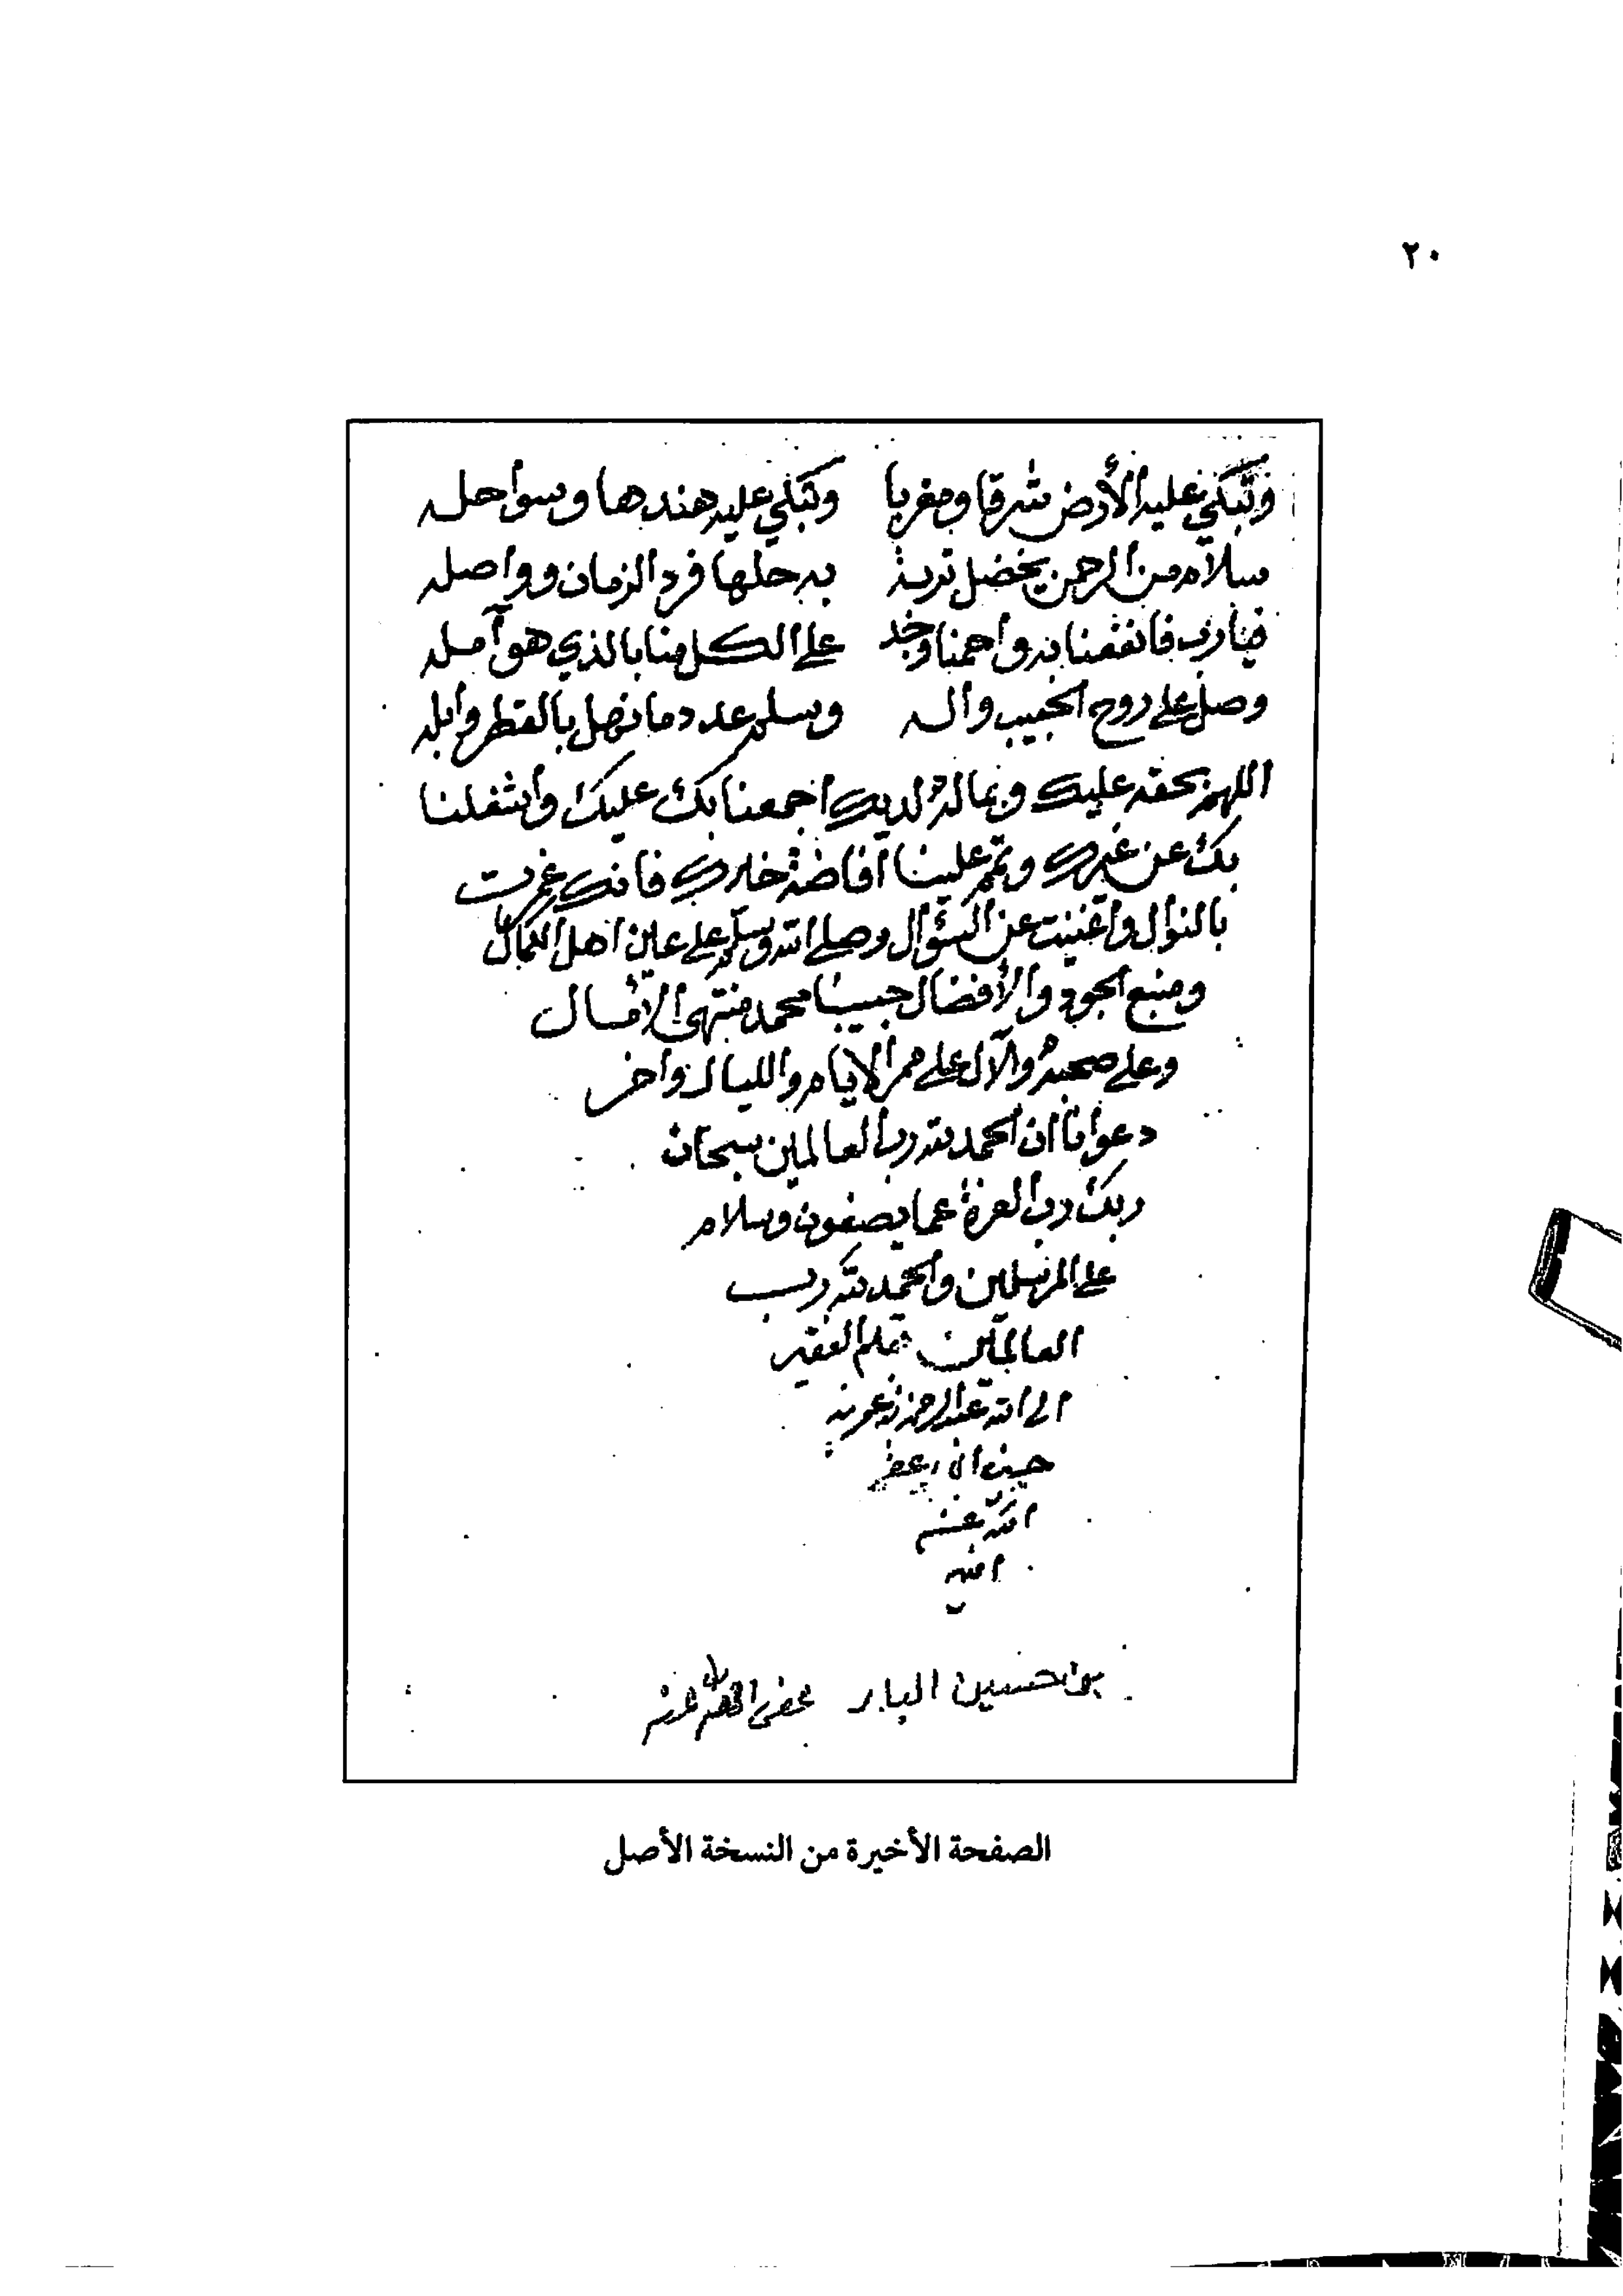 ٢٠
وتبكي عليه الأرض شرقا ومغربا وتبكي عليه هندها وسواحله
سلام من الرحمن يخضل تربة به حلها فرد الزمان وواصله
فيارب فانفعنا به واحمنا وجد على الكل منا بالذي هو آمله
وصل على روح الحبيب وآله وسلم عدد ما نهل بالقطر وابله
اللهم بحقه عليك وبماله لديك اجمعنا بك عليك واشغلنا
بك عن غيرك وتمم علينا افاضة خيرك فانك غمرت
بالنوال واغنيت عن السؤال وصلى الله وسلم على عين اهل الكمال
ومنبع الجود والأفضال حبيبنا محمد منتهى الآمال
وعلى صحبه والآل على ممر الايام والليال وآخر
دعوانا ان الحمد لله رب العالمين سبحان
ربك رب العزة عما يصفون وسلام
على المرسلين والحمد لله رب
العالمين بقلم الفقير
الى الله عبد الرحمن بن عمر بن
الله عنه
بن حسين البار عفى الله عنه
الصفحة الأخيرة من النسخة الأصل